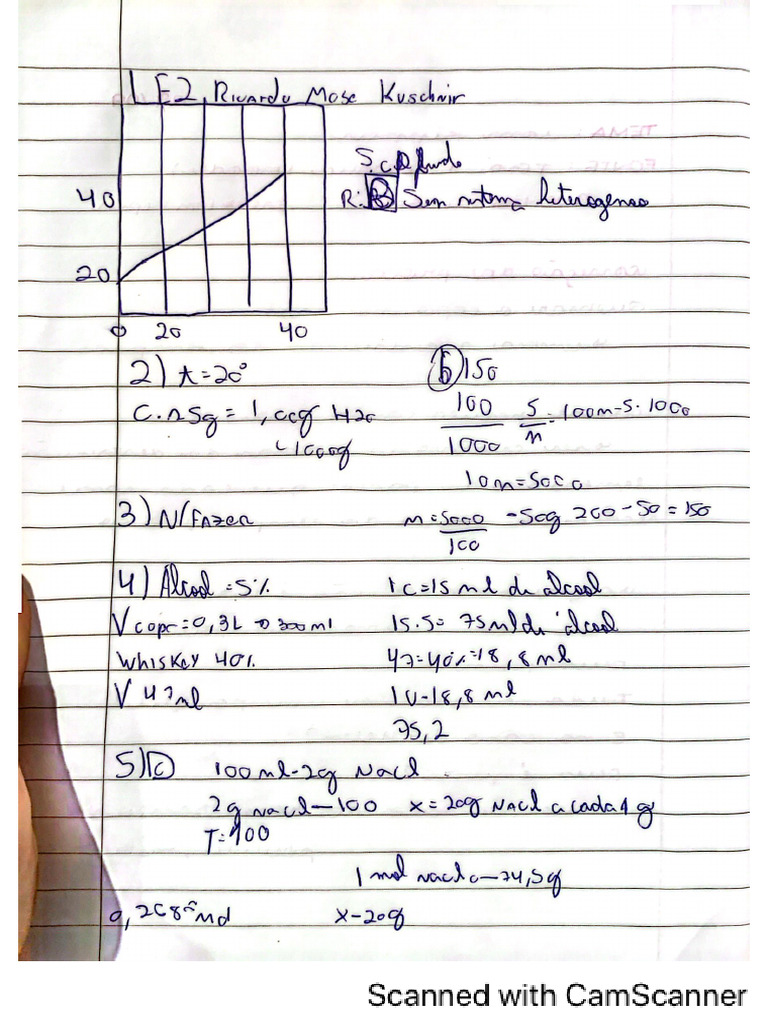 1 E2, Ricardo Mose Kuschnir
40
20
0 20 40
R: B Sem sistema heterogeneo
2) t=20°
= 1,00g H20
1000g
150
100
1000
5
m
=100m-5.1000
10m=5000
3) N/Fazer
m=5000
100
-50g 200-50=150
4) Álcool =5%
1c=15 ml de álcool
Vcopo=0,3L → 300ml
15.5= 75ml de álcool
Whiskey 40%
47=40%=18,8 ml
V 47ml
1U-18,8 ml
75,2
5) C 100ml-2g NaCl
2g NaCl-100 x=20g NaCl a cada 1 g
T=100
1 mol NaCl-74,5g
0,268 Mol x-20g
Scanned with CamScanner